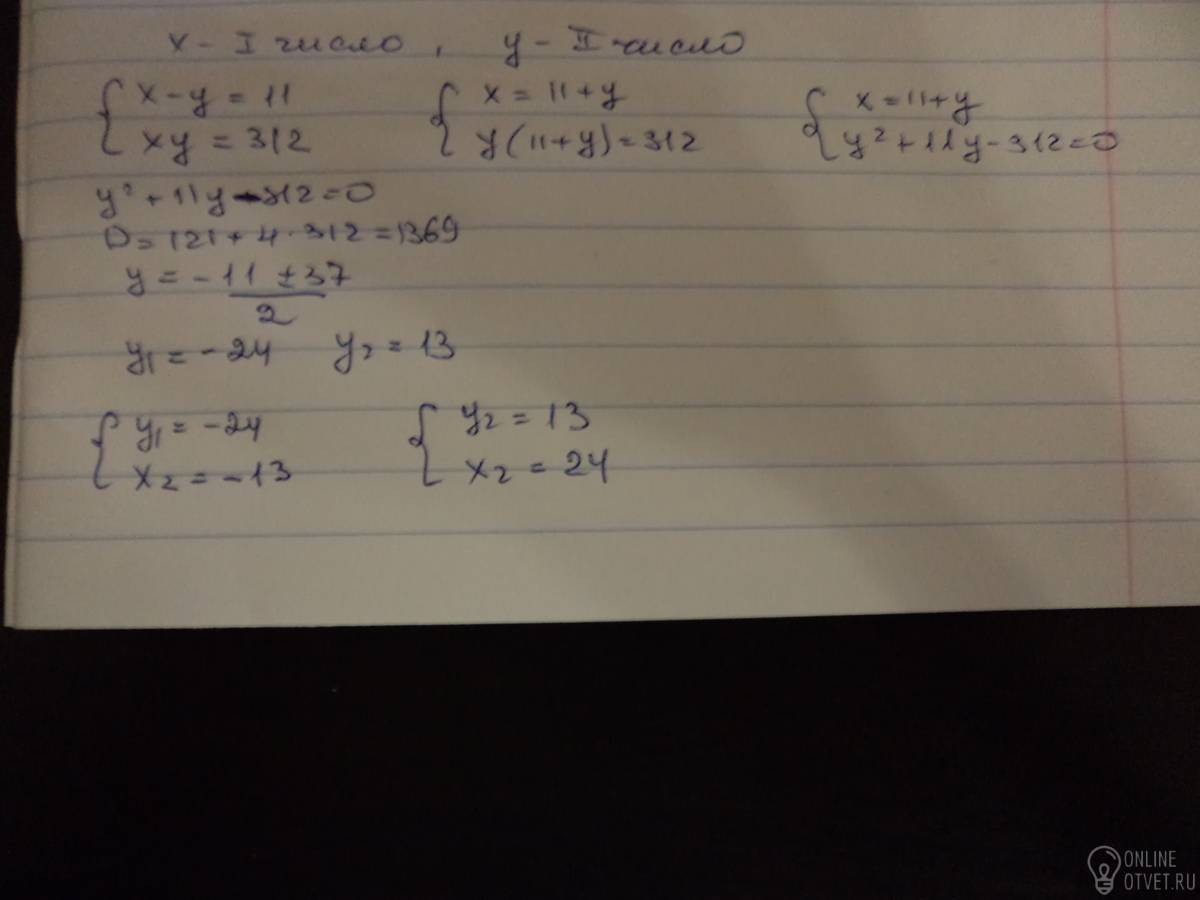 x - I число, y - II число
{ x - y = 11 { x = 11 + y { x = 11 + y
xy = 312 y(11+y) = 312 y² + 11y - 312 = 0
y² + 11y - 312 = 0
D = 121 + 4 · 312 = 1369
y = -11 ± 37
2
y₁ = -24 y₂ = 13
{ y₁ = -24 { y₂ = 13
x₂ = -13 x₂ = 24
ONLINE
OTVET.RU